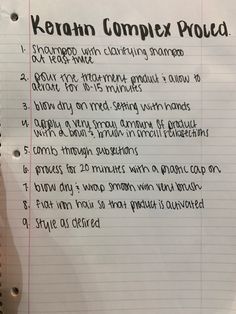 Keratin Complex Proced.
1. shampoo with clarifying shampoo
at least twice
2. pour the treatment product & allow to
aerate for 10-15 minutes
3. blow dry on med. setting with hands
4. apply a very small amount of product
with a bowl & brush in small subsections
5. comb through subsections
6. process for 20 minutes with a plastic cap on
7. blow dry & wrap smooth with vent brush
8. flat iron hair so that product is activated
9. style as desired